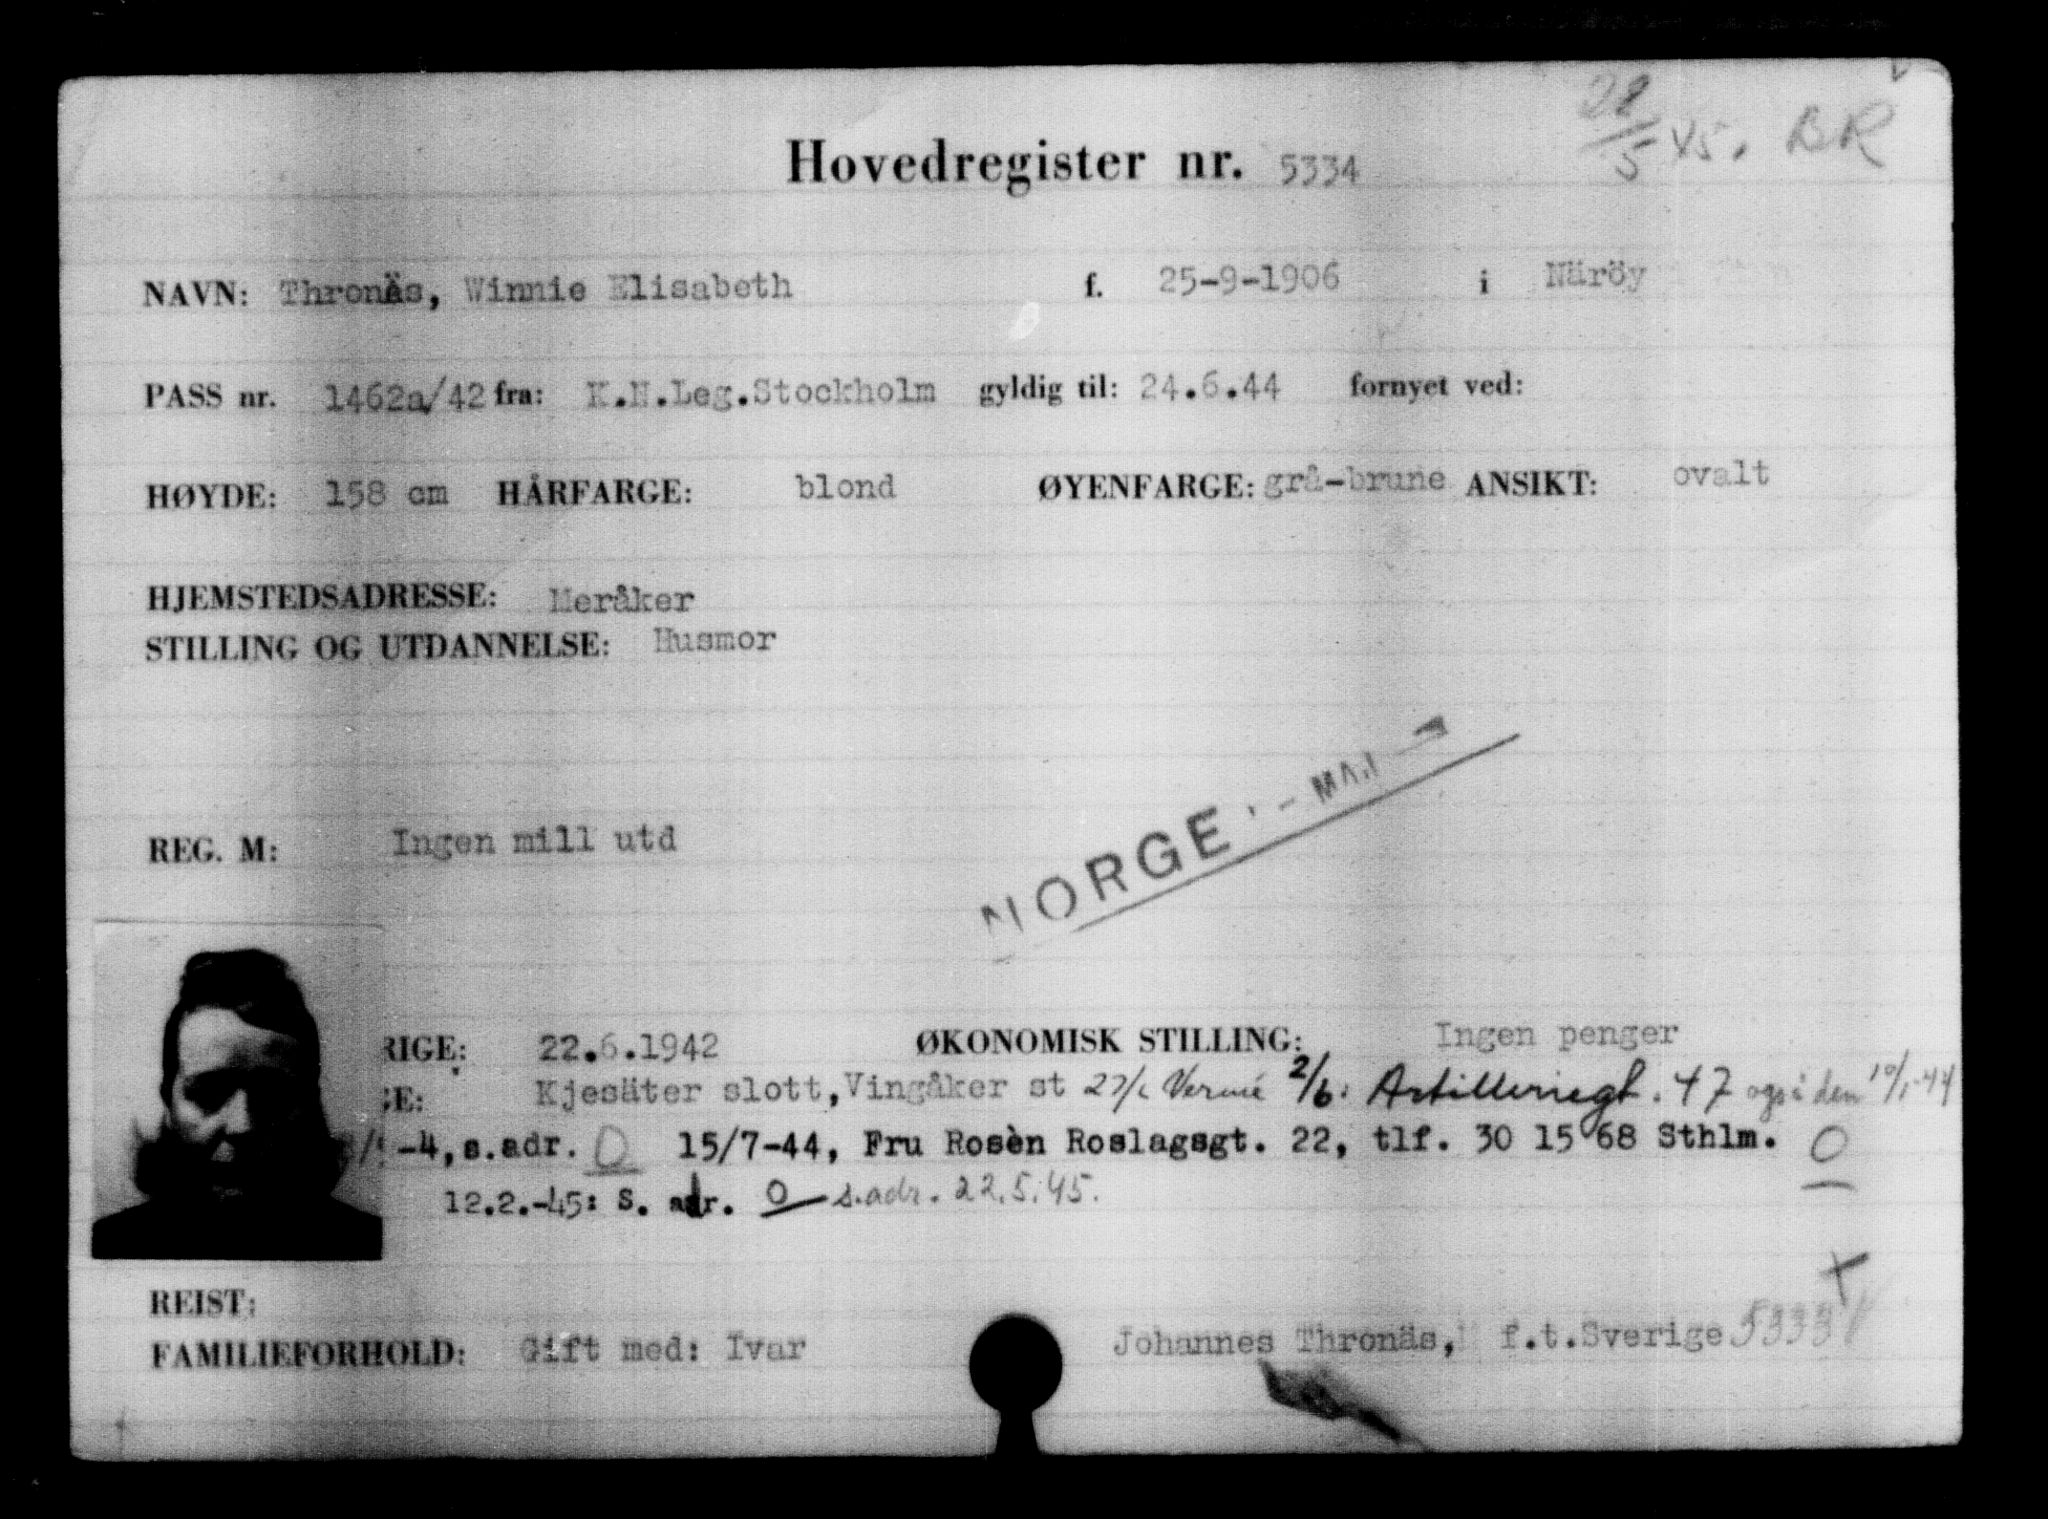 28/5 45. BR
Hovedregister nr. 5334
NAVN: Thronäs, Winnie Elisabeth f. 25-9-1906 i Näröy
PASS nr. 1462a/42 fra: K.N.Leg.Stockholm gyldig til: 24.6.44 fornyet ved:
HØYDE: 158 cm HÅRFARGE: blond ØYENFARGE: grå-brune ANSIKT: ovalt
HJEMSTEDSADRESSE: Meråker
STILLING OG UTDANNELSE: Husmor
NORGE
REG. M: Ingen mill utd
RIGE: 22.6.1942 ØKONOMISK STILLING: Ingen penger
GE: Kjesäter slott, Vingåker st 2/6: Artilleriegt. 47 også den 10/1-44
-4, s.adr. 0 15/7-44, Fru Rosèn Roslagsgt. 22, tlf. 30 15 68 Sthlm. 0
12.2.-45: S. adr. 0 s.adr. 22.5.45.
REIST:
FAMILIEFORHOLD: Gift med: Ivar Johannes Thronäs, f.t.Sverige